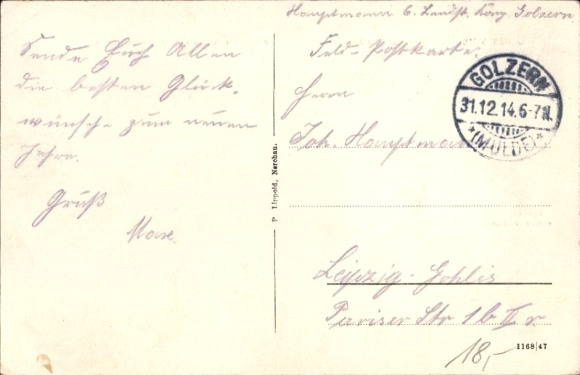 Hauptmann 6. Landst. Komp. Golzern
Sende Euch Allen
die besten Glück-
wünsche zum neuen
Jahre.
Gruß
Max.
Feld-Postkarte.
Herrn
Joh. Hauptmann
Leipzig-Gohlis
Pariser Str 1b II r.
GOLZERN
31.12.14.6-7N.
*(MULDE)*
P. Lippold, Nerchau.
18,-
1168/47